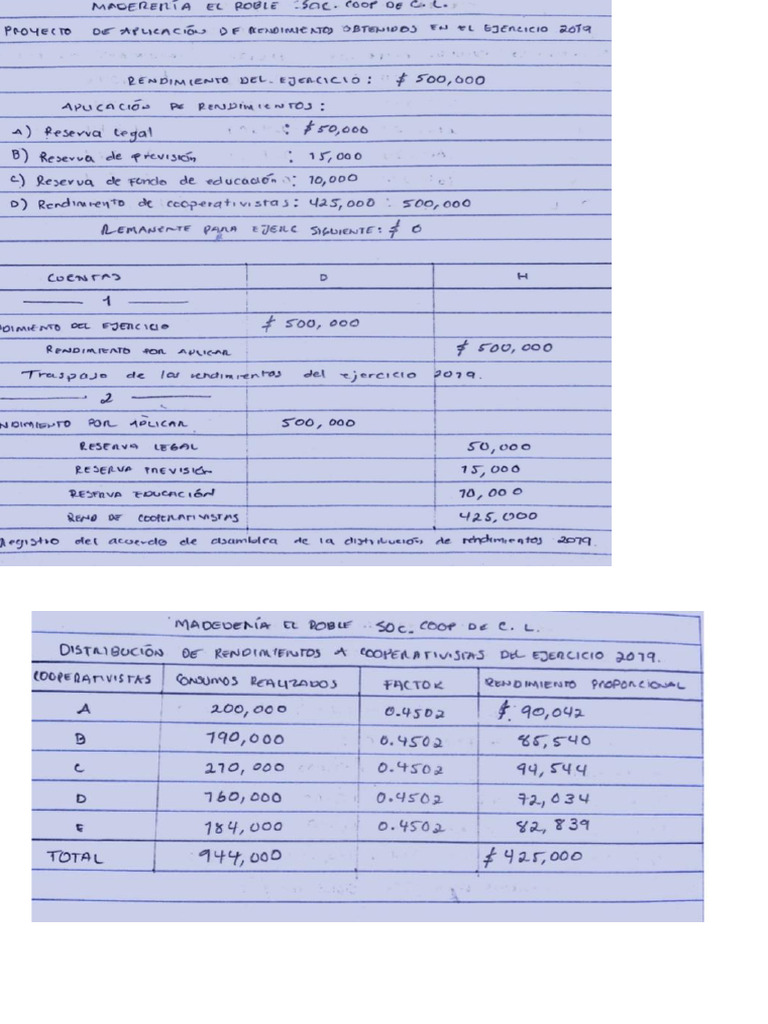 MADERERÍA EL ROBLE SOC. COOP DE C. L.
PROYECTO DE APLICACIÓN DE RENDIMIENTOS OBTENIDOS EN EL EJERCICIO 2019
RENDIMIENTO DEL EJERCICIO: $ 500,000
APLICACIÓN DE RENDIMIENTOS:
A) Reserva legal : $50,000
B) Reserva de previsión : 15,000
C) Reserva de Fondo de educación: 10,000
D) Rendimiento de cooperativistas: 425,000 : 500,000
REMANENTE PARA EJERC SIGUIENTE: $ 0
CUENTAS D H
1
DIMIENTO DEL EJERCICIO $ 500,000
RENDIMIENTO POR APLICAR $ 500,000
Traspaso de los rendimientos del ejercicio 2019.
2
NDIMIENTO POR APLICAR 500,000
RESERVA LEGAL 50,000
RESERVA PREVISIÓN 15,000
RESERVA EDUCACIÓN 10,000
REND DE COOPERATIVISTAS 425,000
Registro del acuerdo de asamblea de la distribución de rendimientos 2019.
MADEDENÍA EL ROBLE SOC. COOP DE C. L.
DISTRIBUCIÓN DE RENDIMIENTOS A COOPERATIVISTAS DEL EJERCICIO 2019.
COOPERATIVISTAS CONSUMOS REALIZADOS FACTOR RENDIMIENTO PROPORCIONAL
A 200,000 0.4502 $ 90,042
B 190,000 0.4502 85,540
C 210,000 0.4502 94,544
D 160,000 0.4502 72,034
E 184,000 0.4502 82,839
TOTAL 944,000 $ 425,000